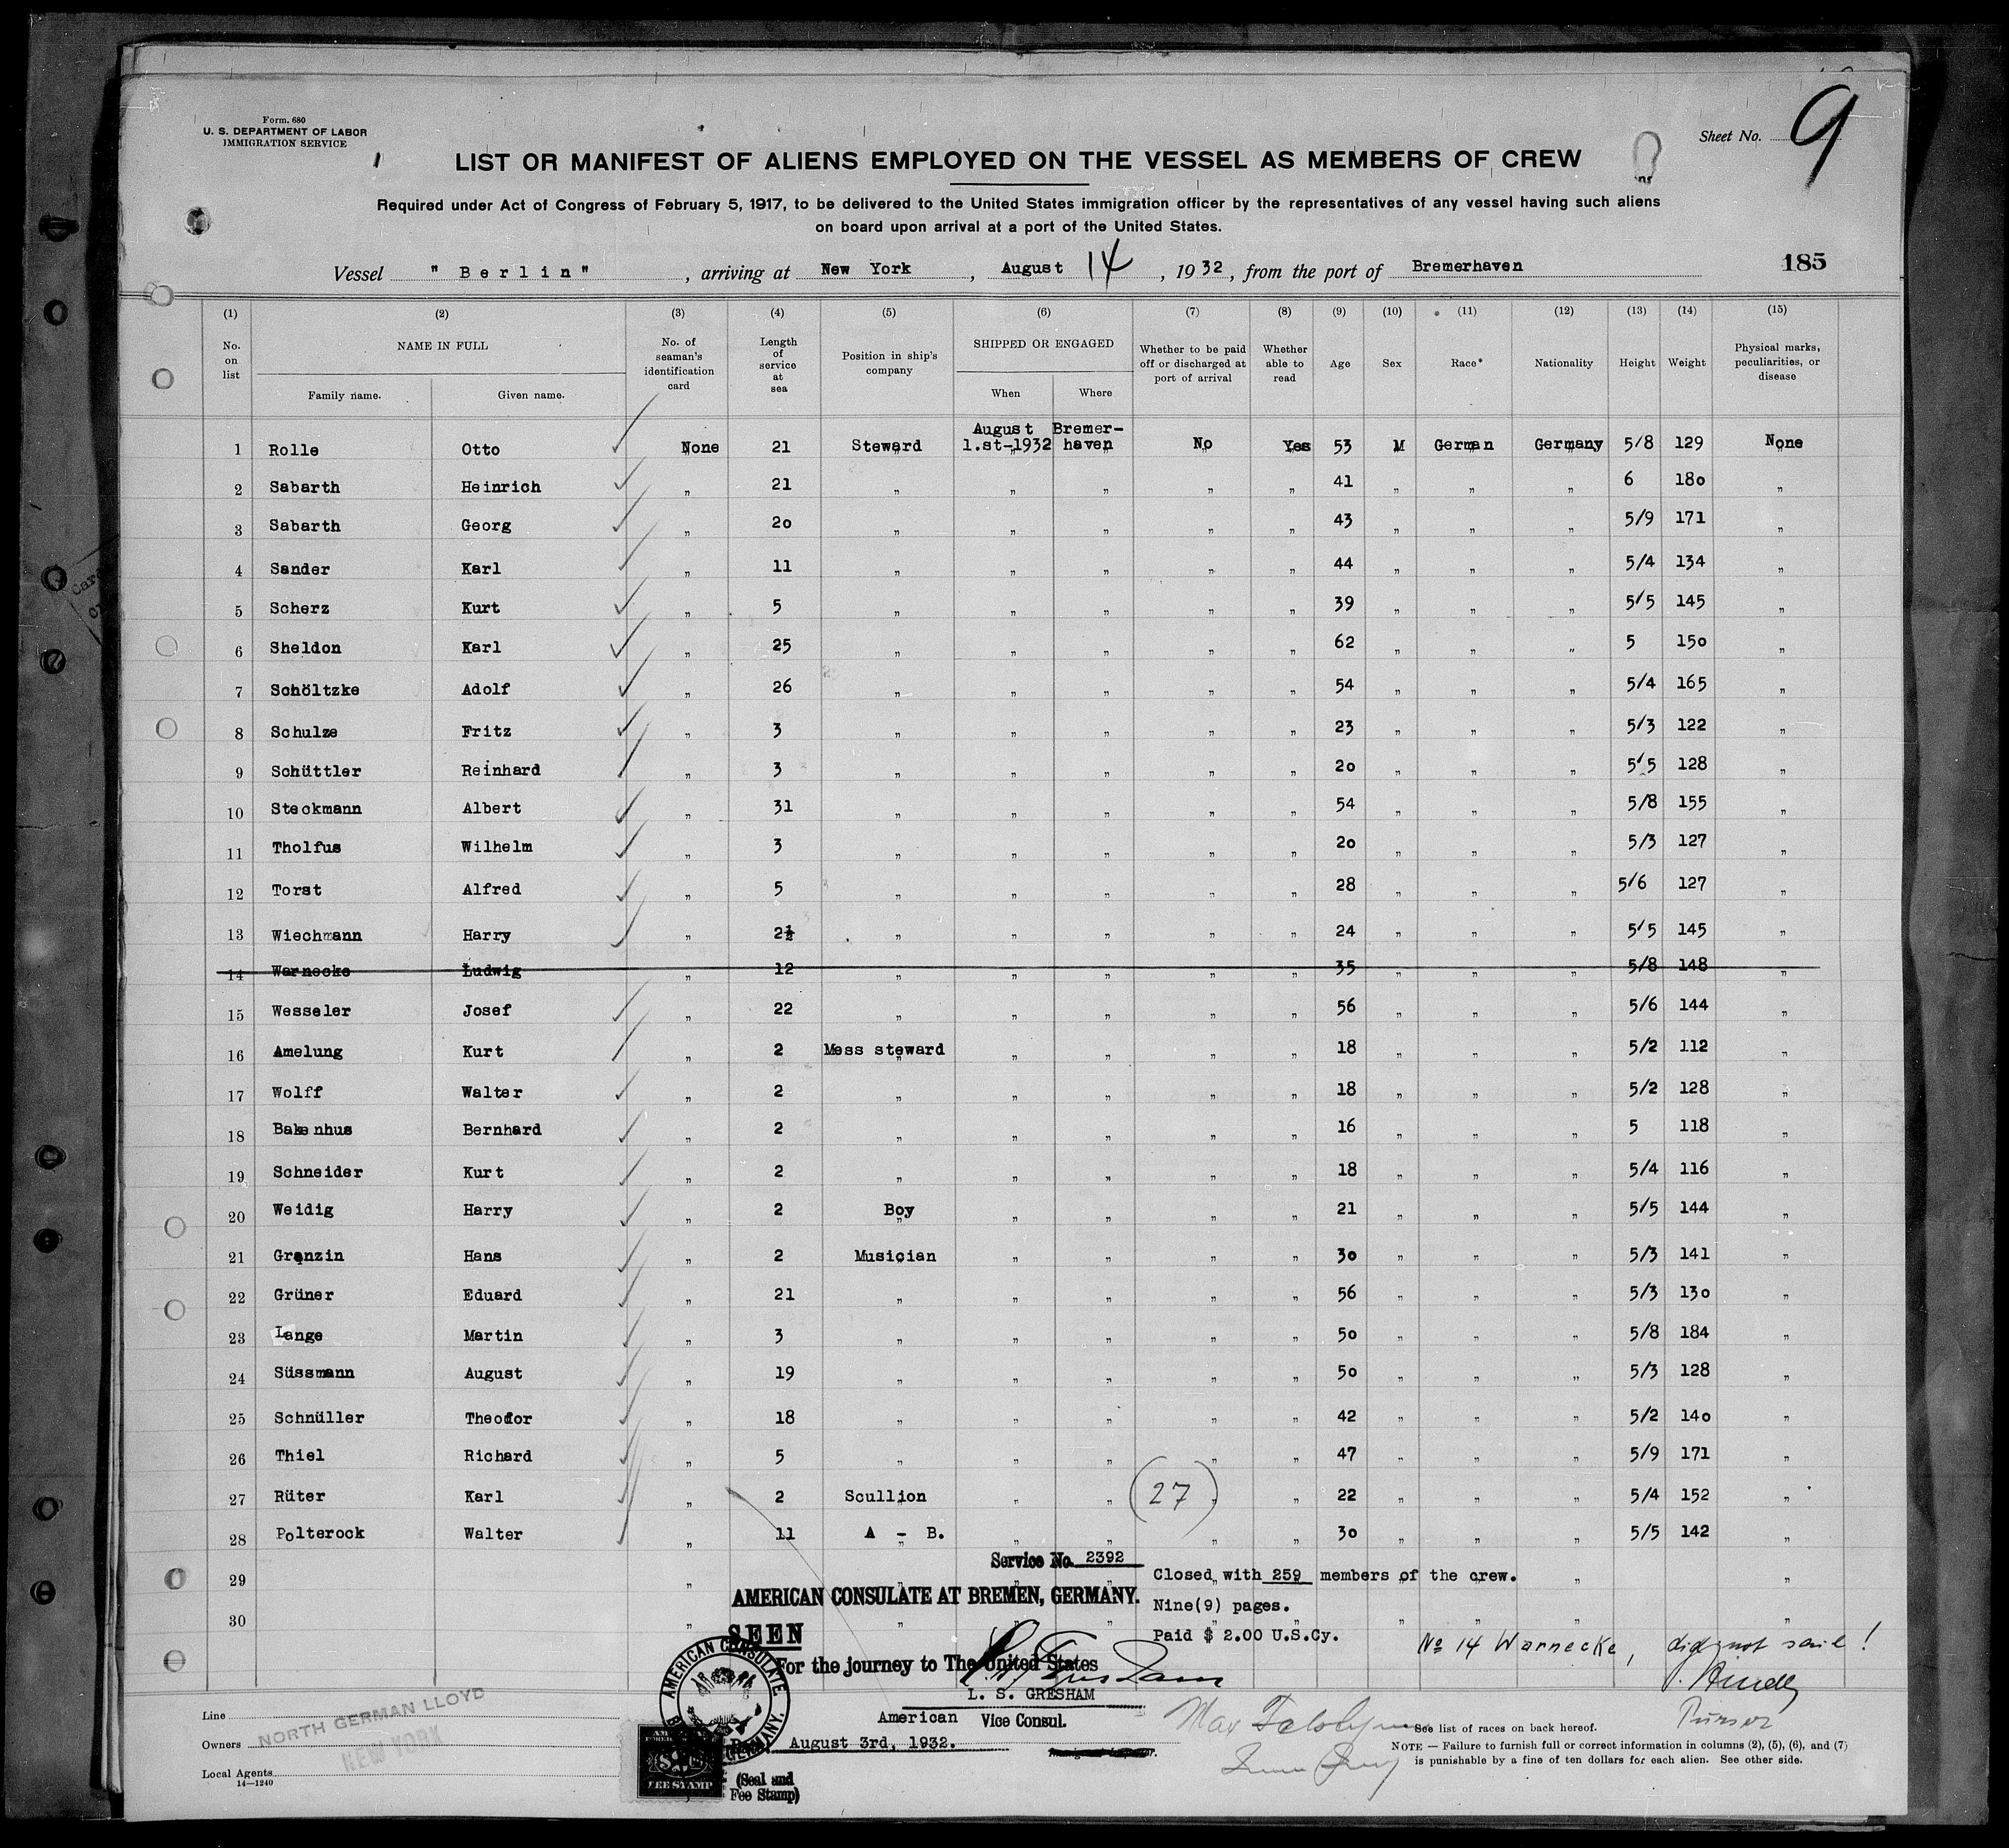 Form. 680
U. S. DEPARTMENT OF LABOR
IMMIGRATION SERVICE
Sheet No. 9
LIST OR MANIFEST OF ALIENS EMPLOYED ON THE VESSEL AS MEMBERS OF CREW
Required under Act of Congress of February 5, 1917, to be delivered to the United States immigration officer by the representatives of any vessel having such aliens
on board upon arrival at a port of the United States.
Vessel "Berlin", arriving at New York, August 14, 1932, from the port of Bremerhaven 185
(1) (2) (3) (4) (5) (6) (7) (8) (9) (10) (11) (12) (13) (14) (15)
No. on list NAME IN FULL Family name. Given name. No. of seaman's identification card Length of service at sea Position in ship's company SHIPPED OR ENGAGED When Where Whether to be paid off or discharged at port of arrival Whether able to read Age Sex Race* Nationality Height Weight Physical marks, peculiarities, or disease
1 Rolle Otto None 21 Steward August 1.st-1932 Bremer-haven No Yes 53 M German Germany 5/8 129 None
2 Sabarth Heinrich " 21 " " " " " 41 " " " 6 180 "
3 Sabarth Georg " 20 " " " " " 43 " " " 5/9 171 "
4 Sander Karl " 11 " " " " " 44 " " " 5/4 134 "
5 Scherz Kurt " 5 " " " " " 39 " " " 5/5 145 "
6 Sheldon Karl " 25 " " " " " 62 " " " 5 150 "
7 Schöltzke Adolf " 26 " " " " " 54 " " " 5/4 165 "
8 Schulze Fritz " 3 " " " " " 23 " " " 5/3 122 "
9 Schüttler Reinhard " 3 " " " " " 20 " " " 5/5 128 "
10 Steckmann Albert " 31 " " " " " 54 " " " 5/8 155 "
11 Tholfus Wilhelm " 3 " " " " " 20 " " " 5/3 127 "
12 Torst Alfred " 5 " " " " " 28 " " " 5/6 127 "
13 Wiechmann Harry " 2½ " " " " " 24 " " " 5/5 145 "
14 Warnecke Ludwig " 12 " " " " " 35 " " " 5/8 148 "
15 Wesseler Josef " 22 " " " " " 56 " " " 5/6 144 "
16 Amelung Kurt " 2 Mess steward " " " " 18 " " " 5/2 112 "
17 Wolff Walter " 2 " " " " " 18 " " " 5/2 128 "
18 Bakenhus Bernhard " 2 " " " " " 16 " " " 5 118 "
19 Schneider Kurt " 2 " " " " " 18 " " " 5/4 116 "
20 Weidig Harry " 2 Boy " " " " 21 " " " 5/5 144 "
21 Granzin Hans " 2 Musician " " " " 30 " " " 5/3 141 "
22 Grüner Eduard " 21 " " " " " 56 " " " 5/3 130 "
23 Lange Martin " 3 " " " " " 50 " " " 5/8 184 "
24 Süssmann August " 19 " " " " " 50 " " " 5/3 128 "
25 Schnüller Theodor " 18 " " " " " 42 " " " 5/2 140 "
26 Thiel Richard " 5 " " " " " 47 " " " 5/9 171 "
27 Rüter Karl " 2 Scullion " " (27) " " 22 " " " 5/4 152 "
28 Polterock Walter " 11 A - B. " " " " 30 " " " 5/5 142 "
29
30
Service No. 2392
AMERICAN CONSULATE AT BREMEN, GERMANY.
SEEN
For the journey to The United States
L. S. GRESHAM
American Vice Consul.
August 3rd, 1932.
(Seal and
Fee Stamp)
AMERICAN CONSULATE
GERMANY.
FEE STAMP
Closed with 259 members of the crew.
Nine(9) pages.
Paid $ 2.00 U.S.Cy.
No 14 Warnecke, did not sail!
Purser
Line
Owners NORTH GERMAN LLOYD
NEW YORK
Local Agents
14—1240
See list of races on back hereof.
NOTE — Failure to furnish full or correct information in columns (2), (5), (6), and (7)
is punishable by a fine of ten dollars for each alien. See other side.